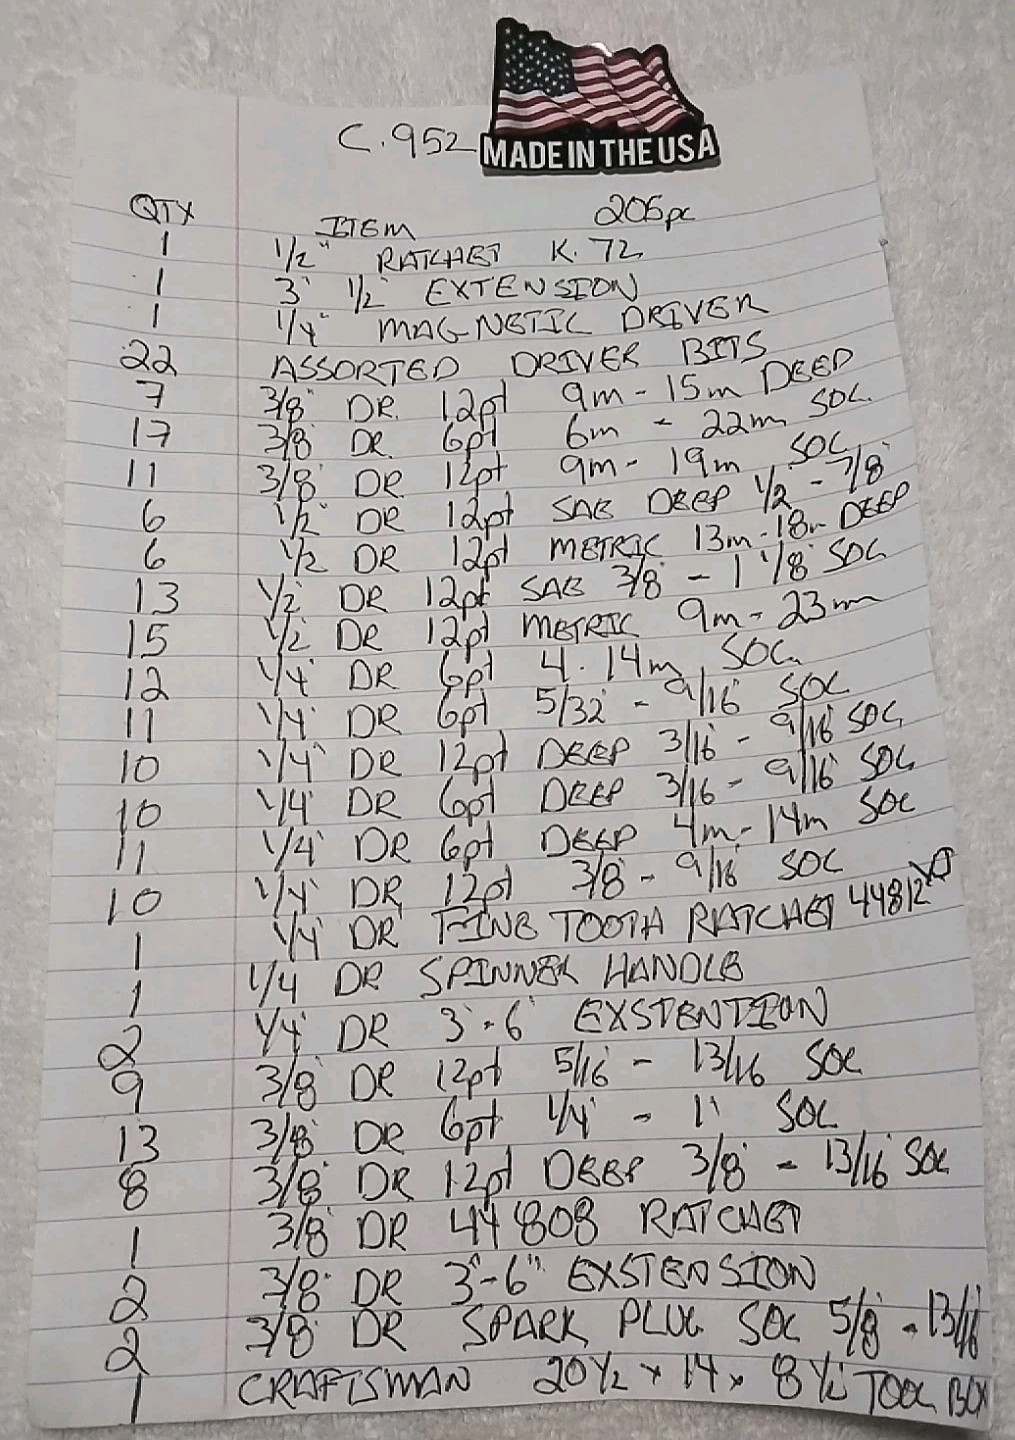 C.952
MADE IN THE USA
QTY ITEM 205pc
1 1/2" RATCHET K. 72
1 3" 1/2" EXTENSION
1 1/4" MAGNETIC DRIVER
22 ASSORTED DRIVER BITS
7 3/8" DR. 12pt 9m - 15m DEEP
17 3/8 DR. 6pt 6m - 22m SOC.
11 3/8" DR. 12pt 9m - 19m SOC
6 1/2" DR 12pt SAE DEEP 1/2 - 7/8"
6 1/2 DR 12pt METRIC 13m - 18m DEEP
13 1/2" DR 12pt SAE 3/8 - 1 1/8" SOC
15 1/2 DR 12pt METRIC 9m - 23mm
12 1/4" DR 6pt 4 - 14m SOC.
11 1/4" DR 6pt 5/32" - 9/16" SOC
10 1/4" DR 12pt DEEP 3/16 - 9/16 SOC
10 1/4" DR 6pt DEEP 3/16 - 9/16" SOC
11 1/4" DR 6pt DEEP 4m - 14m SOC
10 1/4" DR 12pt 3/8 - 9/16" SOC
1 1/4" DR FINE TOOTH RATCHET 44812 VJ
1 1/4 DR SPINNER HANDLE
2 1/4" DR 3" - 6" EXSTENTION
9 3/8" DR 12pt 5/16" - 13/16 SOC
13 3/8" DR 6pt 1/4" - 1" SOC
8 3/8" DR 12pt DEEP 3/8" - 13/16" SOC
1 3/8" DR 44808 RATCHET
2 3/8" DR 3" - 6" EXSTENSION
2 3/8" DR SPARK PLUG SOC 5/8" - 13/16"
1 CRAFTSMAN 20 1/2 x 14 x 8 1/2 TOOL BOX